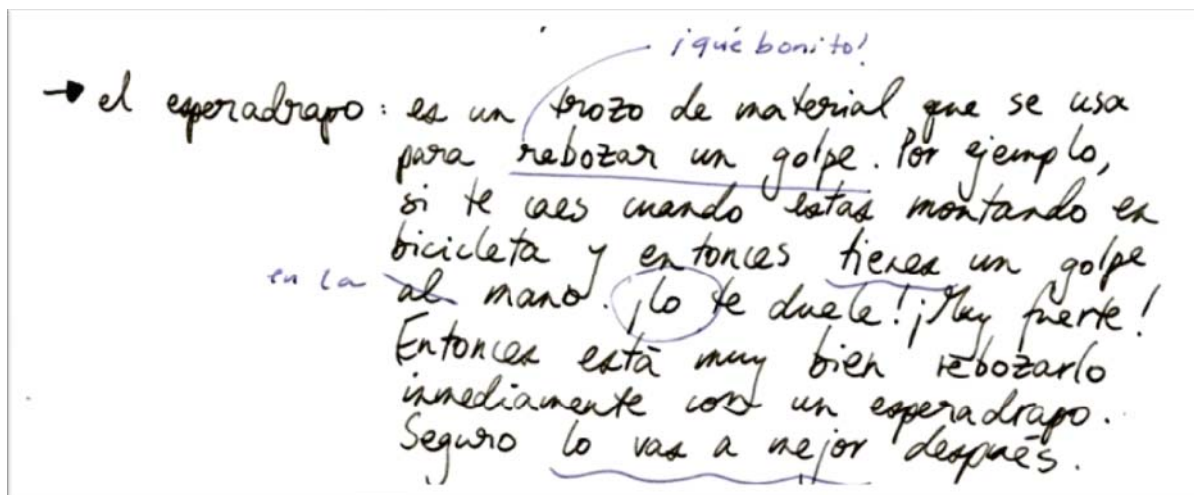 ¡qué bonito!
→ el esperadrapo: es un trozo de material que se usa
para rebozar un golpe. Por ejemplo,
si te caes cuando estas montando en
bicicleta y entonces tienes un golpe
en la
al mano. ¡Lo te duele! ¡Muy fuerte!
Entonces está muy bien rebozarlo
inmediamente con un esperadrapo.
Seguro lo vas a mejor después.